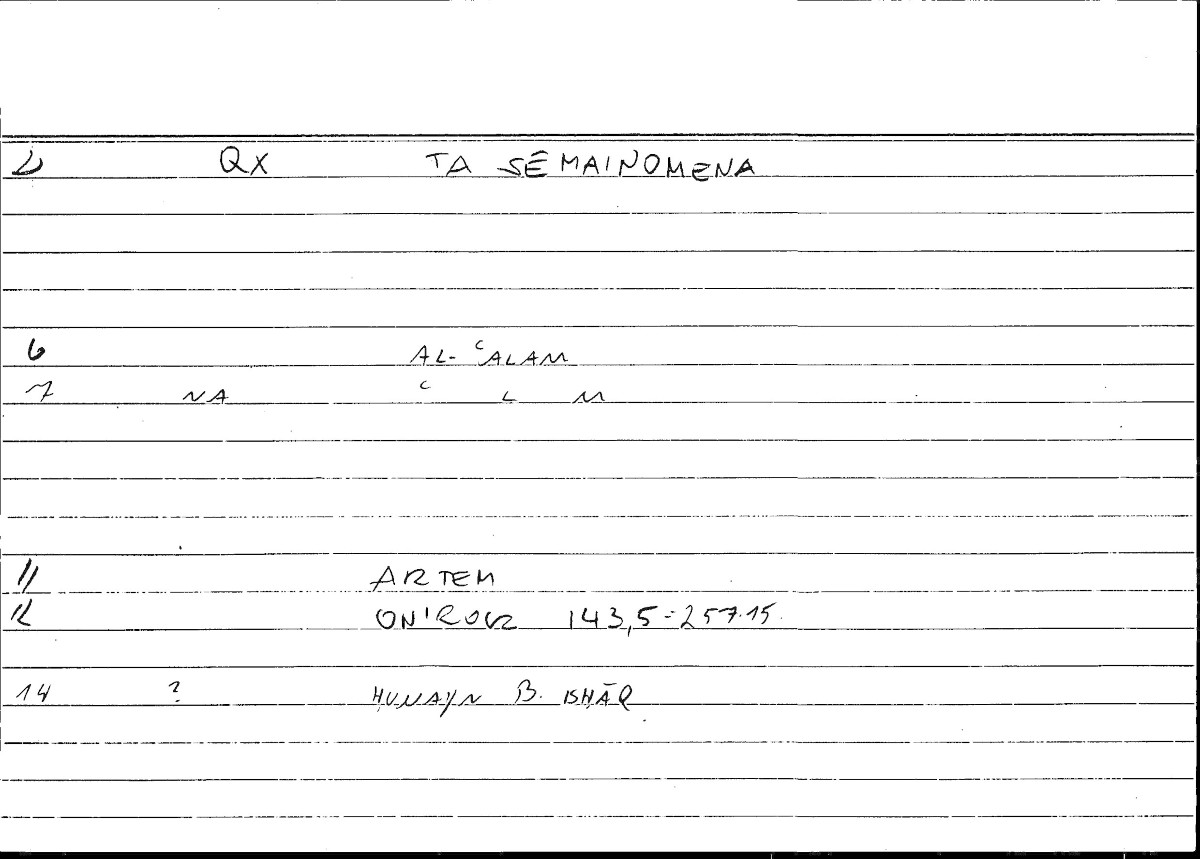 QX TA SĒMAINOMENA
6 AL-ʿALAM
7 NA ʿ L M
11 ARTEM
12 ONIROCR 143,5=257.15.
14 ? ḤUNAYN B. ISḤĀQ